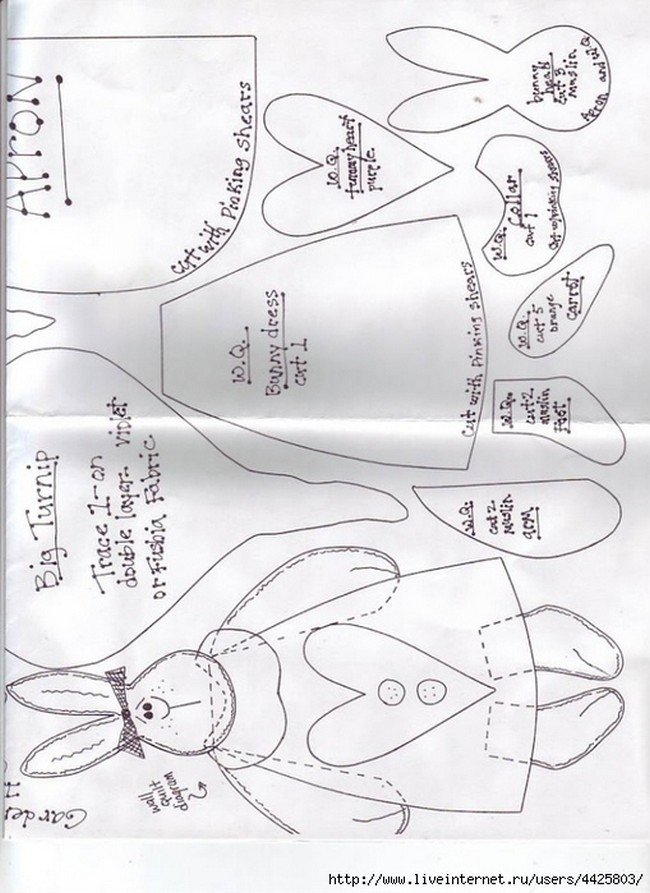 APRON
Cut with Pinking Shears
W.Q.
tummy heart
purple
bunny
head
cut 3
muslin
Apron and W.Q.
W.Q.
Collar
cut 1
Cut w/pinking shears
W.Q.
Bunny dress
cut 1
Cut with pinking shears
W.Q.
cut 5
orange
carrot
W.Q.
cut 2
muslin
foot
W.Q.
cut 2
muslin
arm
Big Turnip
Trace 1-on
double layer violet
or Fushia Fabric
wall
quilt
diagram
Garde
http://www.liveinternet.ru/users/4425803/